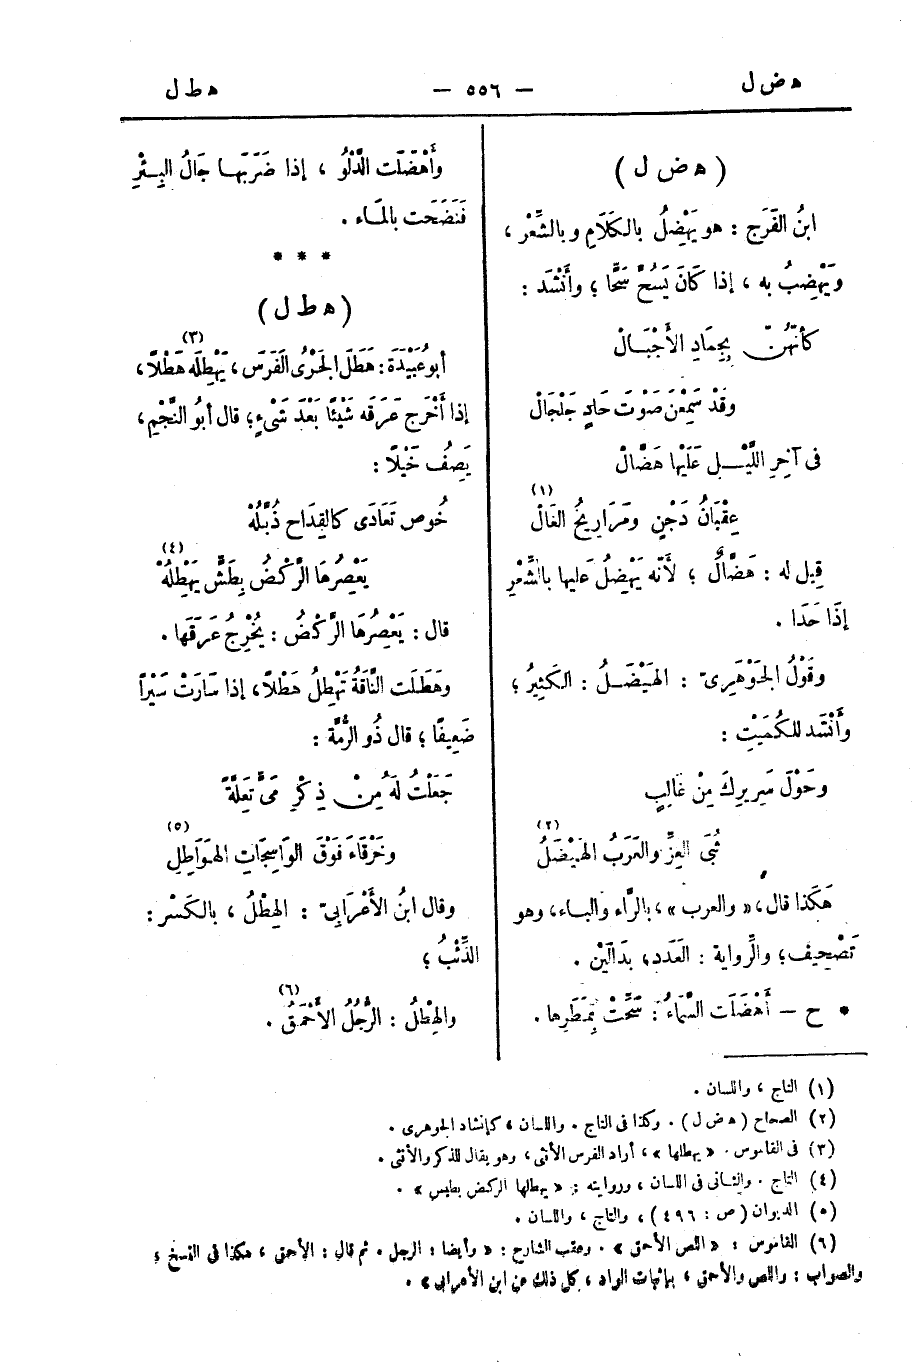 هـ ض ل — ٥٥٦ — هـ ط ل
( هـ ض ل )
ابنُ الفَرَج : هو يَهْضِلُ بالكَلَامِ وبالشِّعْرِ ،
ويَهْضِبُ به ، إذا كَانَ يَسُحُّ سَحًّا ؛ وأَنْشَد :
كأنّهُنّ بِجِمَادِ الأَجْبَالْ
وقَدْ سَمِعْنَ صَوْتَ حَادٍ جَلْجَالْ
فى آخِرِ اللَّيْلِ عَلَيْها هَضَّالْ
عِقْبَانُ دَجْنٍ ومَرَارِيخُ الغَالْ (١)
قِيل له : هَضَّالٌ ؛ لأَنّه يَهْضِلُ عَليها بالشِّعْرِ
إذَا حَدَا .
وقَوْلُ الجَوْهَرِىّ : الهَيْضَلُ : الكَثِيرُ ؛
وأَنْشَد للكُمَيْتِ :
وحَوْلَ سَرِيرِكَ مِنْ غَالِبٍ
ثُبَى العِزِّ والعَرَبُ الهَيْضَلُ (٢)
هكَذا قال ، « والعرب » ، بالرَّاء والباء ، وهو
تَصْحِيف ؛ والرِّواية : العَدَد ، بدَالَيْن .
* ح — أَهْضَلَت السَّمَاءُ : سَحَّتْ بِمَطَرِها .
وأَهْضَلَت الدَّلْوُ ، إذا ضَرَبَها جَالُ البِئْرِ
فَنَضَحَت بالمَاء .
* * *
( هـ ط ل )
أبو عُبَيْدَة : هَطَلَ الجَرْىُ الفَرَسَ ، يَهْطِلُه (٣) هَطْلًا ،
إذا أَخْرَج عَرَقَه شَيْئًا بَعْدَ شَىْءٍ ؛ قال أبُو النَّجْمِ ،
يَصِفُ خَيْلًا :
خُوص تَعَادَى كالقِدَاح ذُبَّلُهْ
يَعْصِرُهَا الرَّكْضُ بِطَشٍّ يَهْطِلُهْ (٤)
قال : يَعْصِرُهَا الرَّكْضُ : يُخْرِجُ عَرَقَها .
وهَطَلَت النَّاقَةُ تَهْطِلُ هَطْلًا ، إذا سَارَتْ سَيْرًا
ضَعِيفًا ؛ قال ذُو الرُّمَّة :
جَعَلْتُ لَهُ مِنْ ذِكْرِ مَىٍّ تَعِلَّةً
وخَرْقَاءَ فَوْقَ الوَاسِجَاتِ الهَوَاطِلِ (٥)
وقال ابنُ الأَعْرَابِىّ : الهِطْلُ ، بالكَسْر :
الذِّئْبُ ؛
والهِطْلُ : الرَّجُلُ الأَحْمَقُ (٦) .
(١) التاج ، واللسان .
(٢) الصحاح ( هـ ض ل ) . وكذا فى التاج . واللسان ، كإنشاد الجوهرى .
(٣) فى القاموس . « يهطلها » ، أراد الفرس الأنثى ، وهو يقال للذكر والأنثى .
(٤) التاج . والثانى فى اللسان ، وروايته : « يهطلها الركض بطيس » .
(٥) الديوان ( ص : ٤٩٦ ) ، والتاج ، واللسان .
(٦) القاموس : « اللص الأحمق » . وعقب الشارح : « وأيضا : الرجل . ثم قال : الأحمق ، هكذا فى النسخ ،
والصواب : واللص والأحمق ، بإثبات الواو ، كل ذلك عن ابن الأعرابى » .